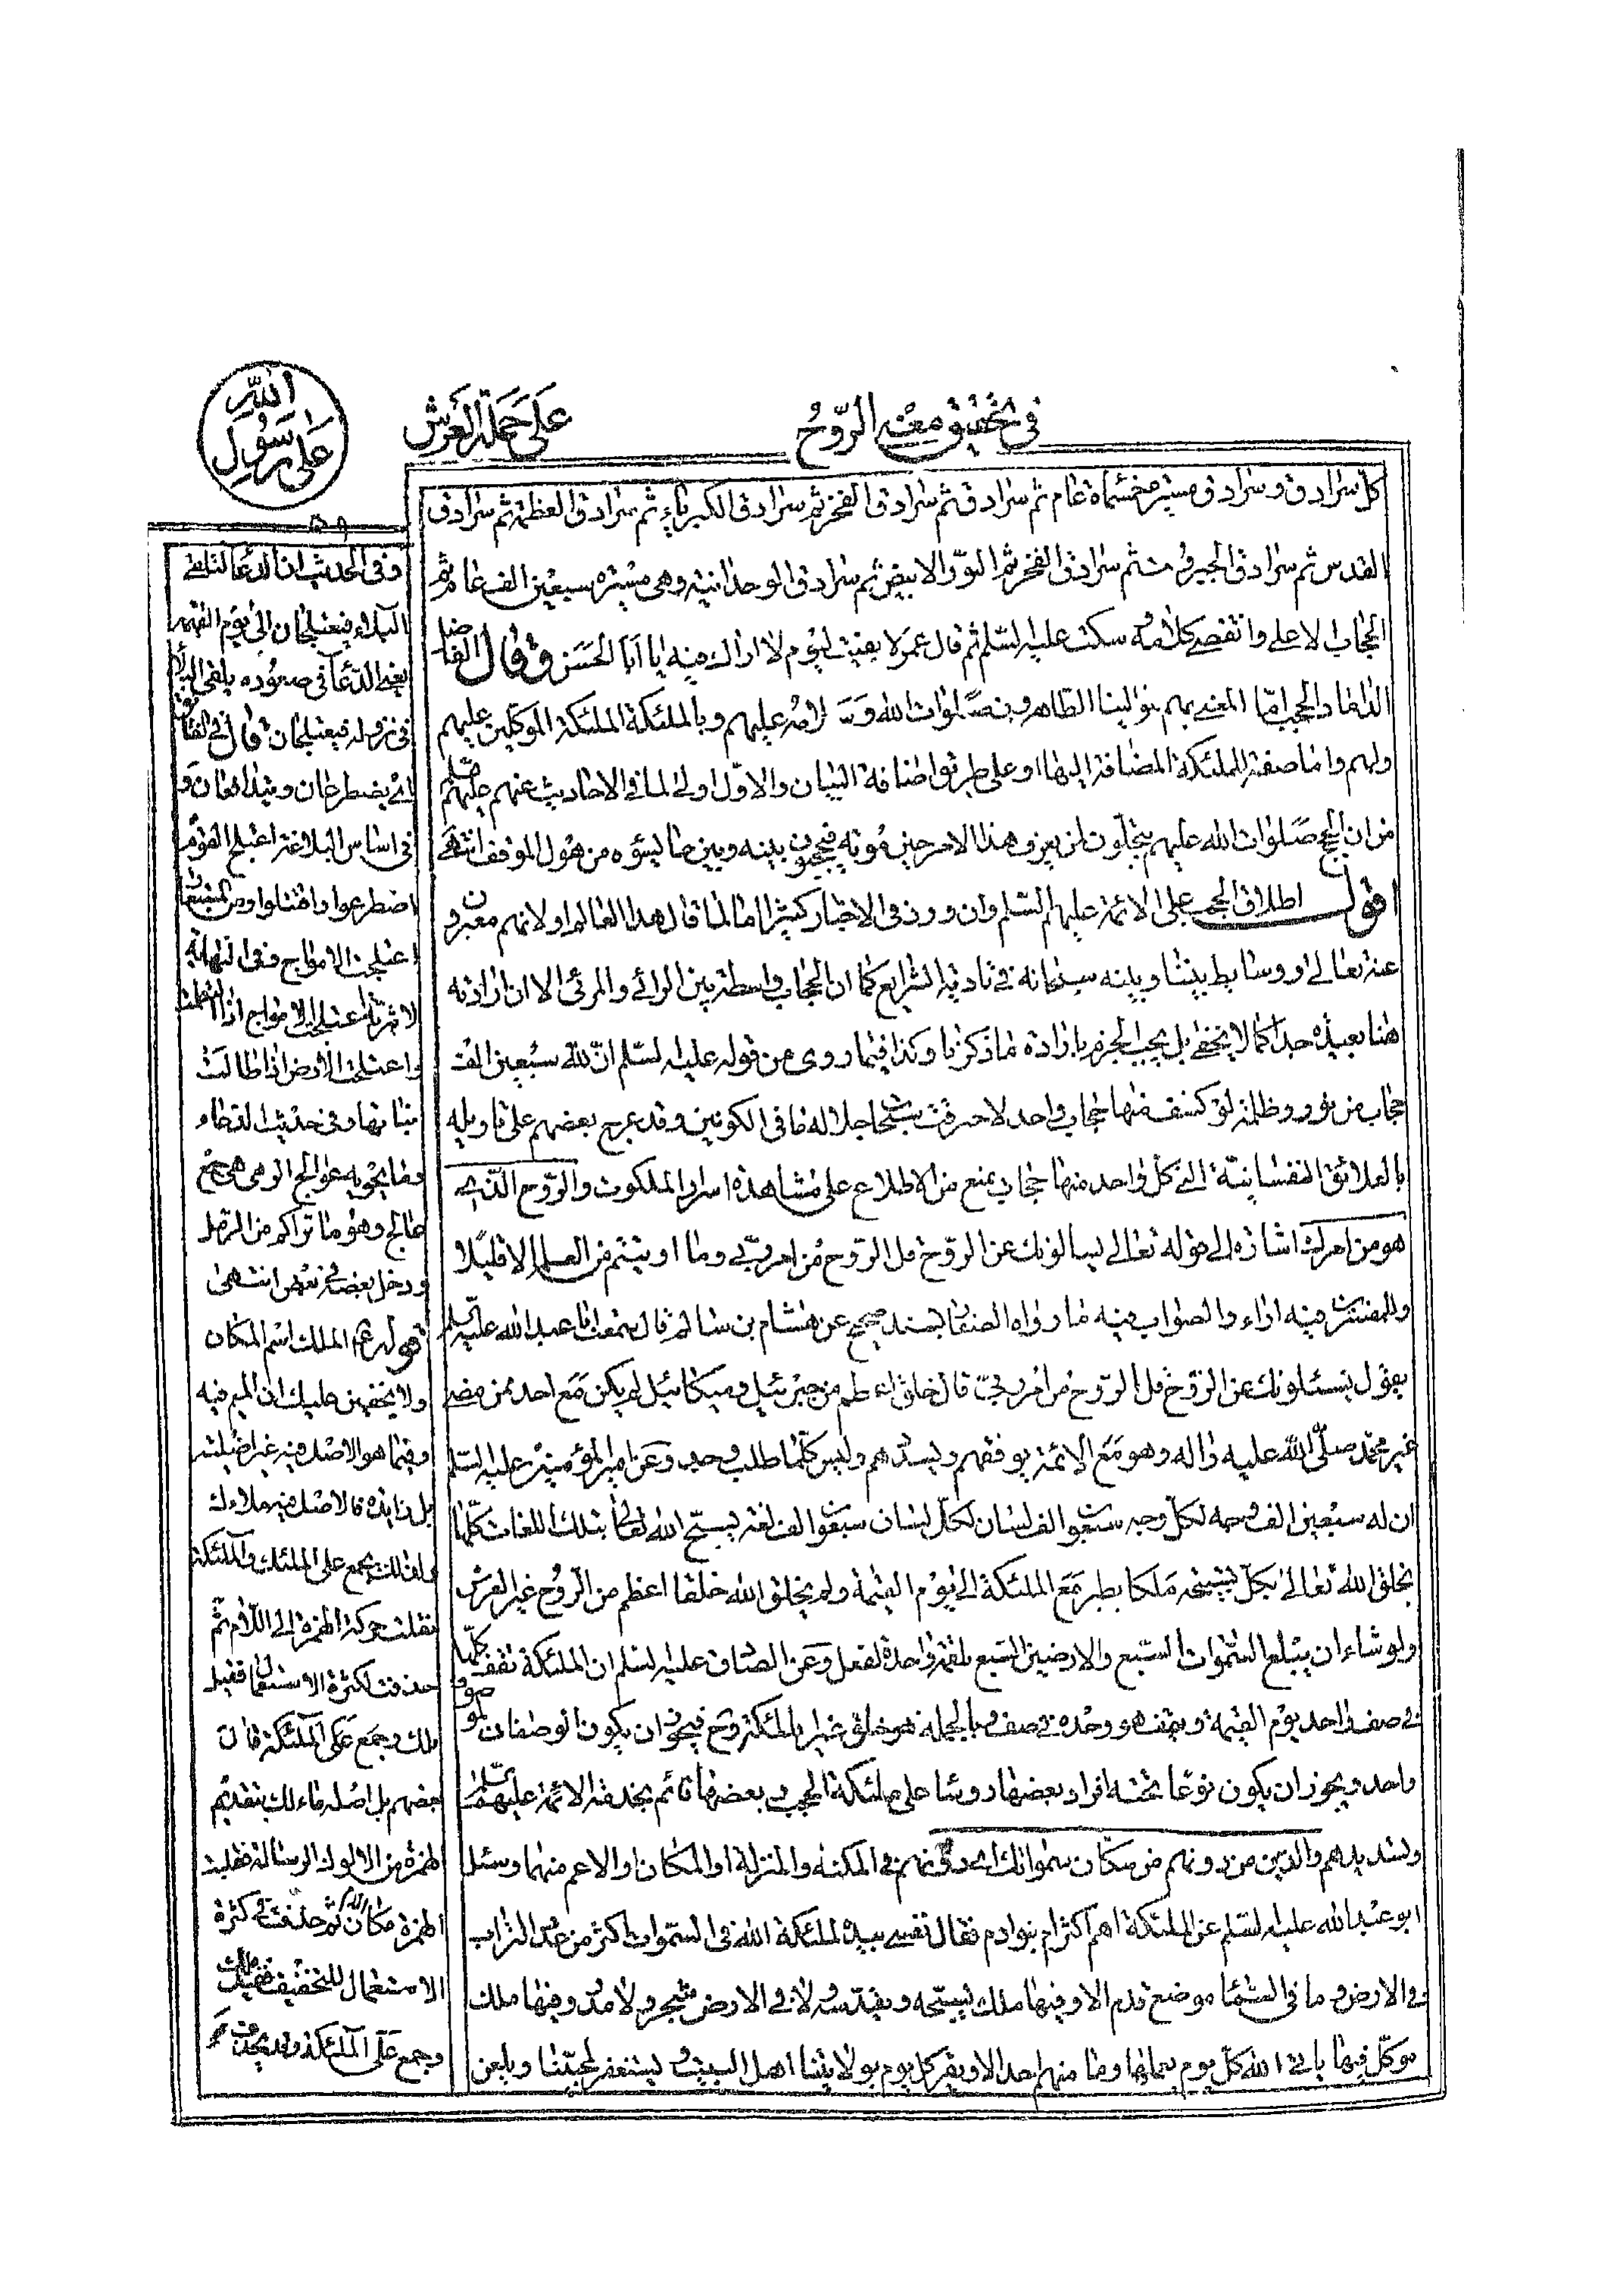 في تحقيق معنى الروح
على حملة العرش
الله
رسول
على
كل سرادق وسرادق مسيرة خمسمائة عام ثم سرادق ثم سرادق الفخر ثم سرادق الكبرياء ثم سرادق العظمة ثم سرادق
القدس ثم سرادق الجبروت ثم سرادق الفخر ثم النور الابيض ثم سرادق الوحدانية وهى مسيرة سبعين الف عام ثم
الحجاب الاعلى وانقضى كلامه سكت عليه السلم ثم قال عمر لا بقيت ليوم لا اراك فيه يا ابا الحسن وقال الفاضل
الداماد الحجب اما المعنى بهم موالينا الطاهرون صلوات الله و عليهم وبالملئكة الملئكة الموكلين عليهم
ولهم واما صفة للملئكة المضافة اليها او على طريق اضافة البيان والاول اولى لما فى الاحاديث عنهم عليهم السلم
من ان الحجج صلوات الله عليهم يتجلون لمن يعزو هذا الامر حين موته فيحجبون بينه وبين ما يسؤه من هول الموقف انتهى
اقول اطلاق الحجب على الائمة عليهم السلم وان ورد فى الاخبار كثيرا اما لما قال هذا العالم او لانهم معبرون
عنه تعالى او وسايط بيننا وبينه سبحانه فى تادية الشرايع كما ان الحجاب واسطة بين الرائى والمرئى الا ان ارادته
هنا بعيدة جدا كما لا يخفى بل يجب الجزم بارادة ما ذكرنا وكذا فيما روى من قوله عليه السلم ان لله سبعين الف
حجاب من نور وظلمة لو كشف منها حجاب واحد لاحرقت سبحات جلاله ما فى الكونين وقد عرج بعضهم على تاويله
بالعلائق النفسانية التى كل واحد منها حجاب يمنع من الاطلاع على مشاهدة اسرار الملكوت والروح الذى
هو من امرك اشارة الى قوله تعالى يسالونك عن الروح قل الروح من امر ربى وما اوتيتم من العلم الا قليلا
وللمفسرين فيه اراء والصواب فيه ما رواه الصفار بسند صحيح عن هشام بن سالم قال سمعت ابا عبد الله عليه السلم
يقول يسئلونك عن الروح قل الروح من امر ربى قال خلق اعظم من جبرئيل وميكائيل لم يكن مع احد ممن مضى
غير محمد صلى الله عليه واله وهو مع الائمة يوفقهم ويسددهم وليس كلما طلب وجد وعن امير المؤمنين عليه السلم
ان له سبعين الف وجه لكل وجه سبعون الف لسان لكل لسان سبعون الف لغة يسبح الله تعالى بتلك اللغات كلها
يخلق الله تعالى بكل تسبيحة ملكا يطير مع الملئكة الى يوم القيمة ولم يخلق الله خلقا اعظم من الروح غير العرش
ولو شاء ان يبلع السموات السبع والارضين السبع بلقمة واحدة لفعل وعن الصادق عليه السلم ان الملئكة تقف كلها
فى صف واحد يوم القيمة ويقف هو وحده فى صف وبالجملة هو خلق غير الملئكة روح فيجوز ان يكونا لو صفان لموصوف
واحد ويجوز ان يكون نوعا تحته افراد بعضها رؤسا على ملئكة الحجب وبعضها قائم بخدمة الائمة عليهم السلم
وتسديدهم والذين من دونهم من سكان سمواتك اى دونهم فى المكنة والمنزلة او المكان او الاعم منهما وسئل
ابو عبد الله عليه السلم عن الملئكة اهم اكثر ام بنو ادم فقال نفسى بيده لملئكة الله فى السموات اكثر من عدد التراب
فى الارض وما فى السماء موضع قدم الا وفيها ملك يسبحه ويقدسه ولا فى الارض شجر ولا مدر وفيها ملك
موكل فيها ياتى الله كل يوم بعملها وما منهم احد الا ويتقرب كل يوم بولايتنا اهل البيت ويستغفر لمحبينا ويلعن
وفى الحديث ان الدعا لتلقى
البلاء فيعتلجان الى يوم القيمة
يعنى الدعا فى صعوده يلقى البلا
فى نزوله فيعتلجان قال فى الفائق
اى يصطرعان ويتدافعان و
فى اساس البلاغة اعتلج القوم
اصطرعوا واقتتلوا ومن المجاز
اعتلجت الامواج وفى النهاية
لاثيرية اعتلجت الامواج اذا التطمت
واعتلجت الارض اذا طالت
نباتها وفى حديث الدعاء
وما تحويه عوالج الرمل هى جمع
عالج وهو ما تراكم من الرمل
ودخل بعضه فى بعض انتهى
قوله الملك اسم المكان
ولا يخفى عليك ان الميم فيه
وفيما هو الاصل فيه غير اصلية
بل زايدة فالاصل فيه ملاءك
ولذلك يجمع على الملئك والملئكة
نقلت حركة الهمزة الى اللام ثم
حذفت لكثرة الاستعمال فقيل
ملك وجمع على الملئكة قال
بعضهم بل اصله مالك بتقديم
الهمزة من الالوك الرسالة فقلبت
الهمزة مكان اللام ثم حذفت فى كثرة
الاستعمال للتخفيف فقيل ملك
وجمع على الملئكة وقد يحذف